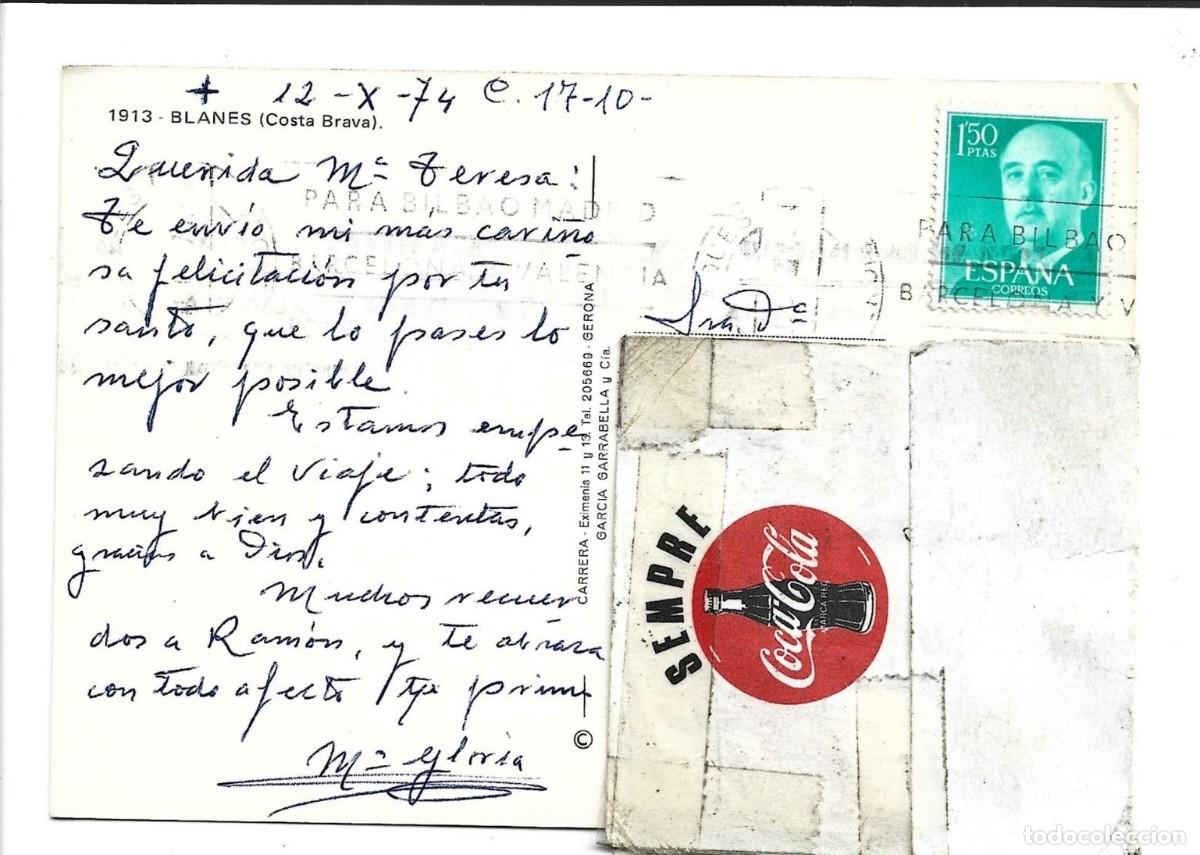 + 12-X-74 C. 17-10-
1913 - BLANES (Costa Brava).
Querida Mª Teresa:
Te envío mi más cariño
sa felicitación por tu
santo, que lo pases lo
mejor posible.
Estamos empe
zando el viaje; todo
muy bien y contentas,
gracias a Dios.
Muchos recuer
dos a Ramón, y te abraza
con todo afecto tu prima
Mª Gloria
CARRERA - Eximenis 11 y 13. Tel. 205669 - GERONA
GARCIA GARRABELLA y Cía.
©
PARA BILBAO MADRID
BARCELONA Y VALENCIA
1'50
PTAS
ESPAÑA
CORREOS
PARA BILBAO
BARCELONA Y V
Sra. Dª
SEMPRE
Coca-Cola
MARCA REG
todocoleccion